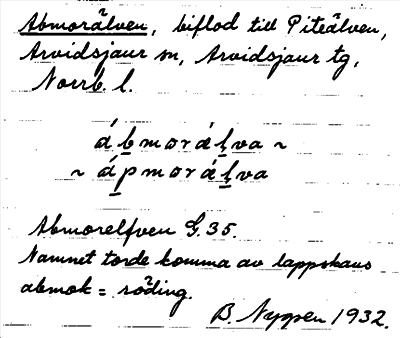 Abmorälven, biflod till Piteälven,
Arvidsjaur sn, Arvidsjaur tg,
Norrb. l.
á b̲ m o r á l̲ v a ~
~ á p̲ m o r á l̲ v a
Abmorelfven G.35.
Namnet torde komma av lappskans
abmok = röding.
B. Nyppen 1932.